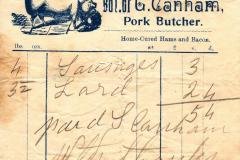 Bot. of C. Canham,
Pork Butcher.
Home-Cured Hams and Bacon.
lbs. ozs. at £ s. d.
4 Sausages 3
32 Lard 24
54
paid S Canham
With Thanks